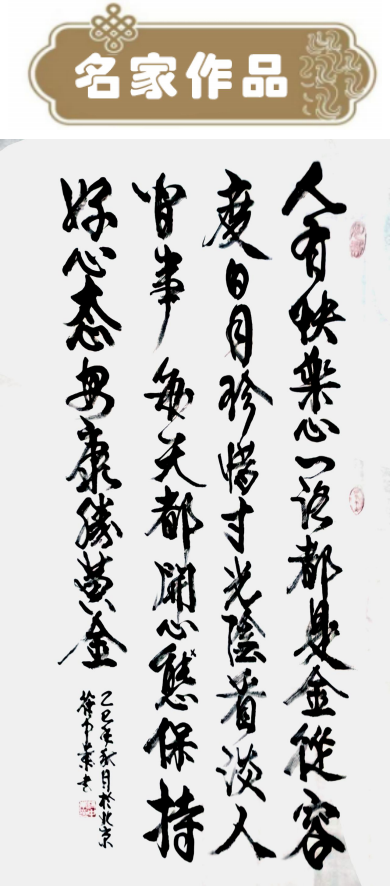 名家作品
人有快樂心一路都是金從容
度日月珍惜寸光陰看淡人
间事每天都開心態保持
好心态安康勝黄金
乙巳年秋月於北京